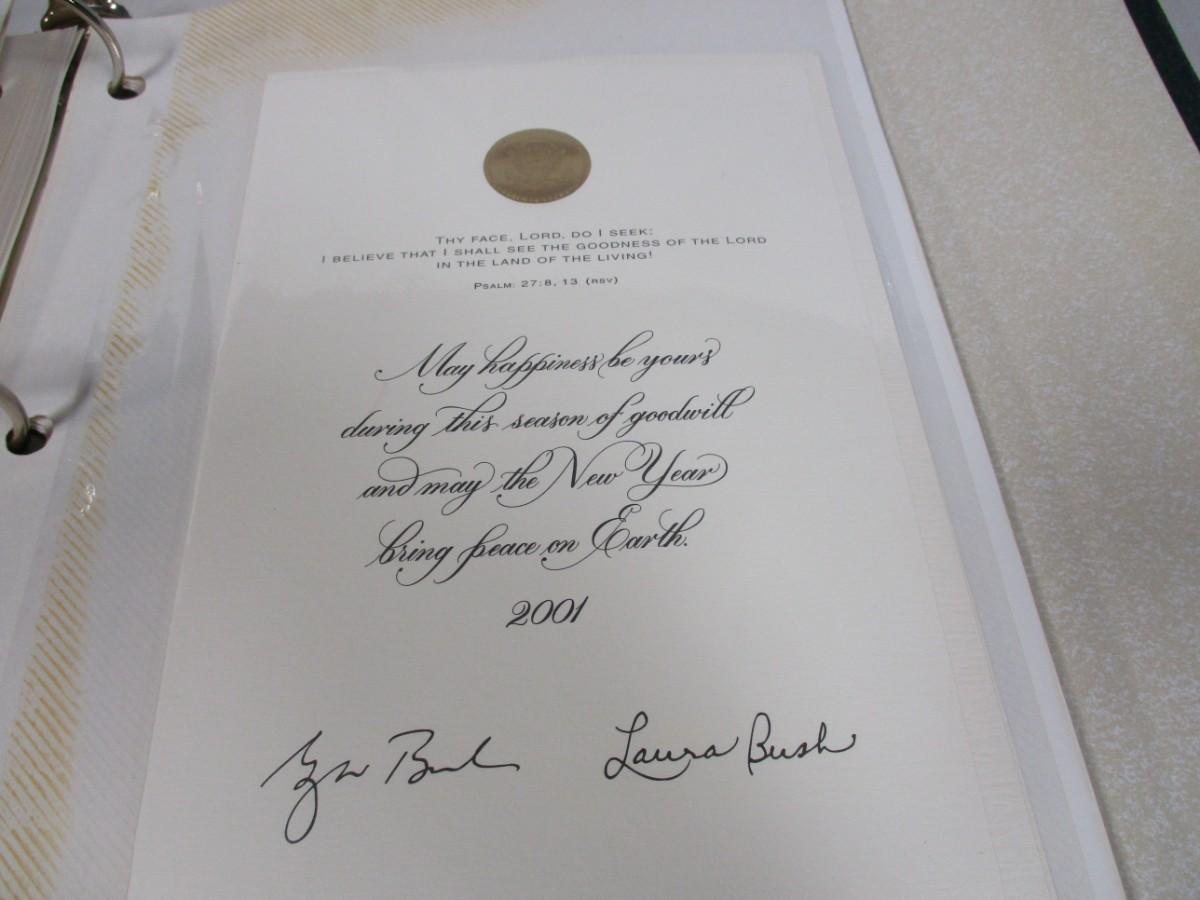 THY FACE, LORD, DO I SEEK:
I BELIEVE THAT I SHALL SEE THE GOODNESS OF THE LORD
IN THE LAND OF THE LIVING!
PSALM: 27:8, 13 (RSV)
May happiness be yours
during this season of goodwill
and may the New Year
bring peace on Earth.
2001
Laura Bush